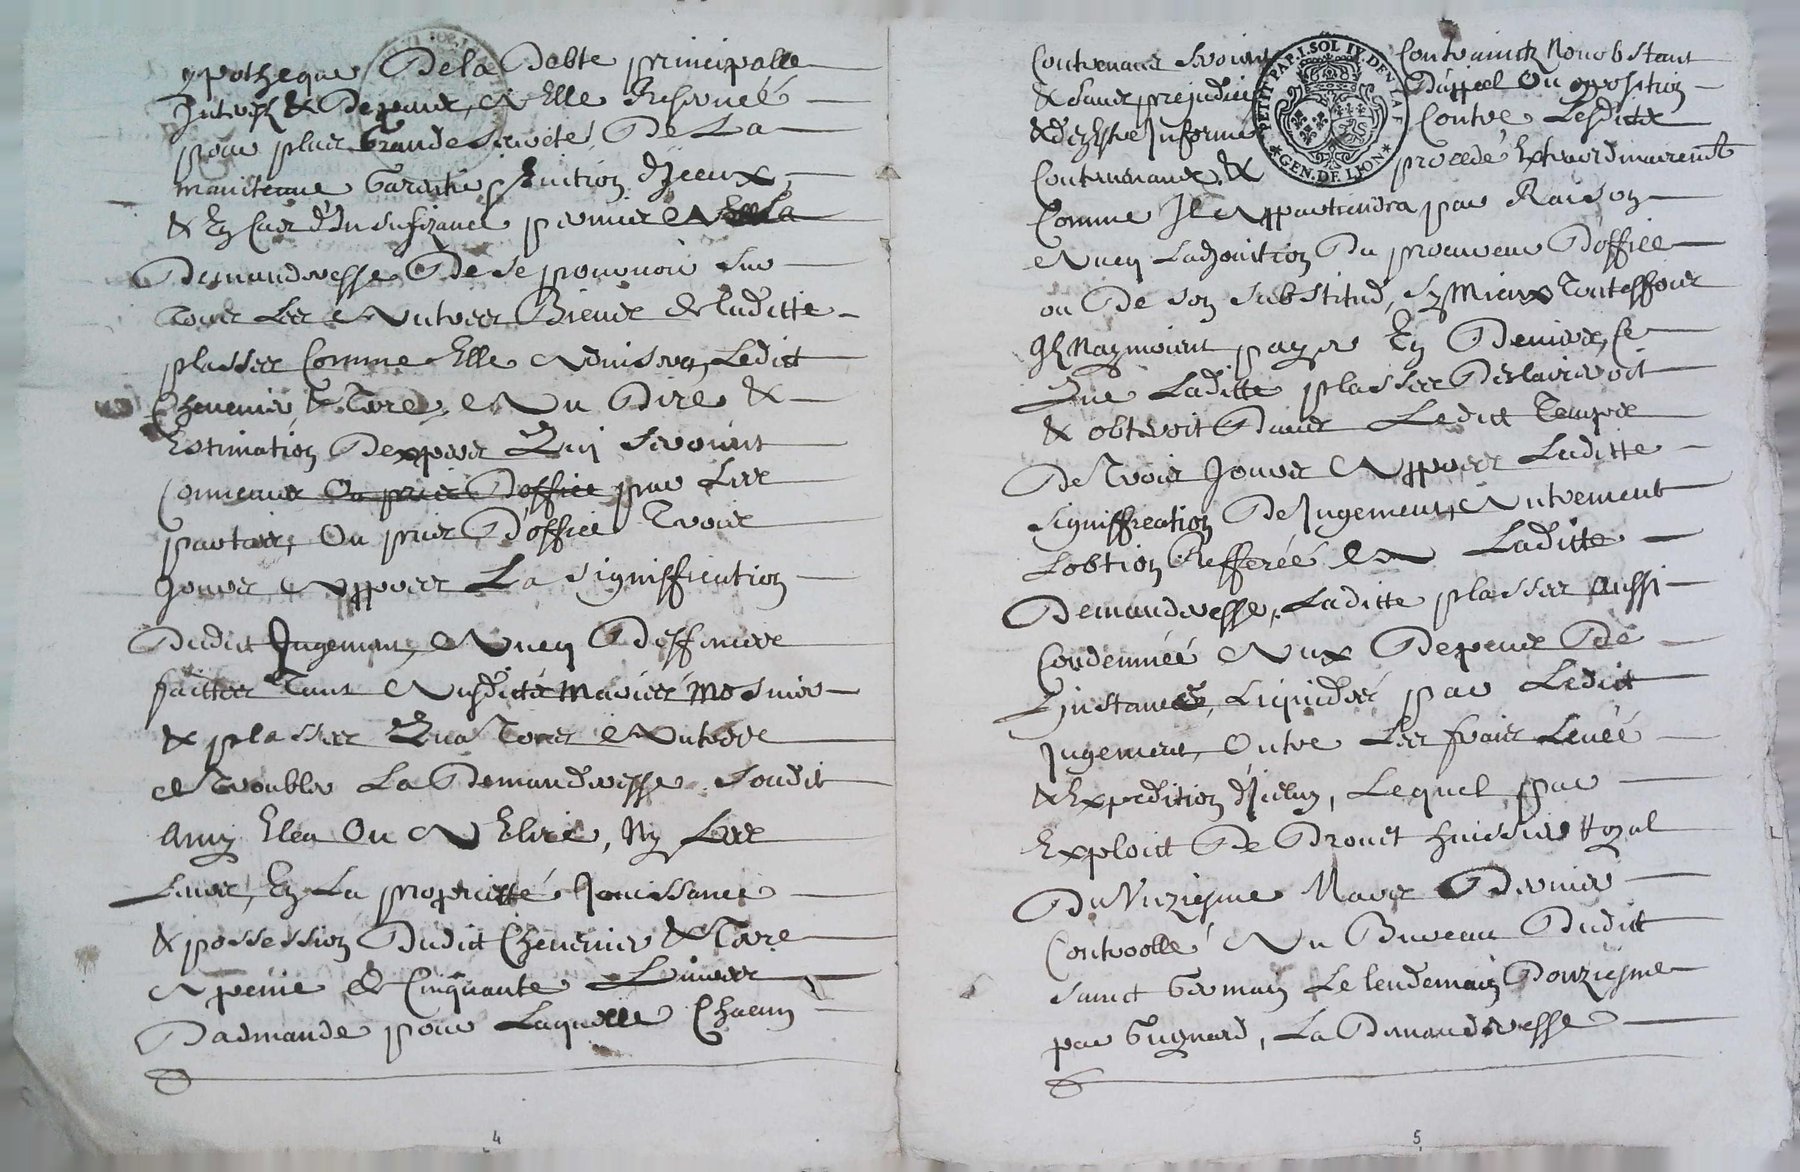 ypotheque De la Dabte principalle
Jnterest & Depans, A Elle Reservéé
pour plus Grande Seureté, De La
maintenue Garentie, Euition d'Jceux,
& En Cas d'Insufizance permis A La
Demanderesse De Se pouruoir Sur
Tous Les Autres Biens de laditte
plasses Comme Elle Aduisera, Ledit
Cheneuier & Terre, Au Dire &
Estimation Dexpers Qui Seroient
Conuenus Ou pris D'office par Les
parties, Ou pris D'office Trois
Jours Appres La Signiffication
Dudict Jugement, Auec Deffences
faittes Tant Ausdicts Mariés Mosnier
& plasses Qua Tous Autres
de Troubler La Demanderesse, Soudit
Amy Eleu Ou A Elire, Ny Les
Siens, En La proprietté Jouissance
& possession Dudict Cheneuier & Terre
A peine de Cinquante Liures
Dadmande pour Laquelle Chacun
4
Contreuenans Seroient Contraincts Nonobstant
& Sans prejudice D'appel Ou oposition
& d'En Estre Informé Contre Lesdicts
Contreuenans, & procedé Extraordinairement
Comme Il Appartiendra par Raison
Auec Ladjonction Du procureur D'office
ou De Son Substitud, Sy Mieux Touteffois
Ils Naymoient payer En Deniers, Ce
Que Laditte plasses Desclaireroit
& obteroit Dans Ledict Temps
De Trois Jours Appres Laditte
Signiffication De Jugement, Autrement
Lobtion Refferéé A Laditte
Demanderesse, Laditte plasses Aussi
Condemnéé Aux Depens De
L'instance, Liquidés par Ledict
Jugement, Outre Les frais Leuéé
& Expedition d'Jcelluy, Lequel par
Exploict De Drouet huissier Royal
Du Unziesme Mars Dernier
Controollé Au Bureau Dudict
Sainct Germain Le lendemain Douziesme
par Guignard, La Demanderesse
PETIT PAP. I. SOL IX. DEN. LA F.
GEN. DE LION
5